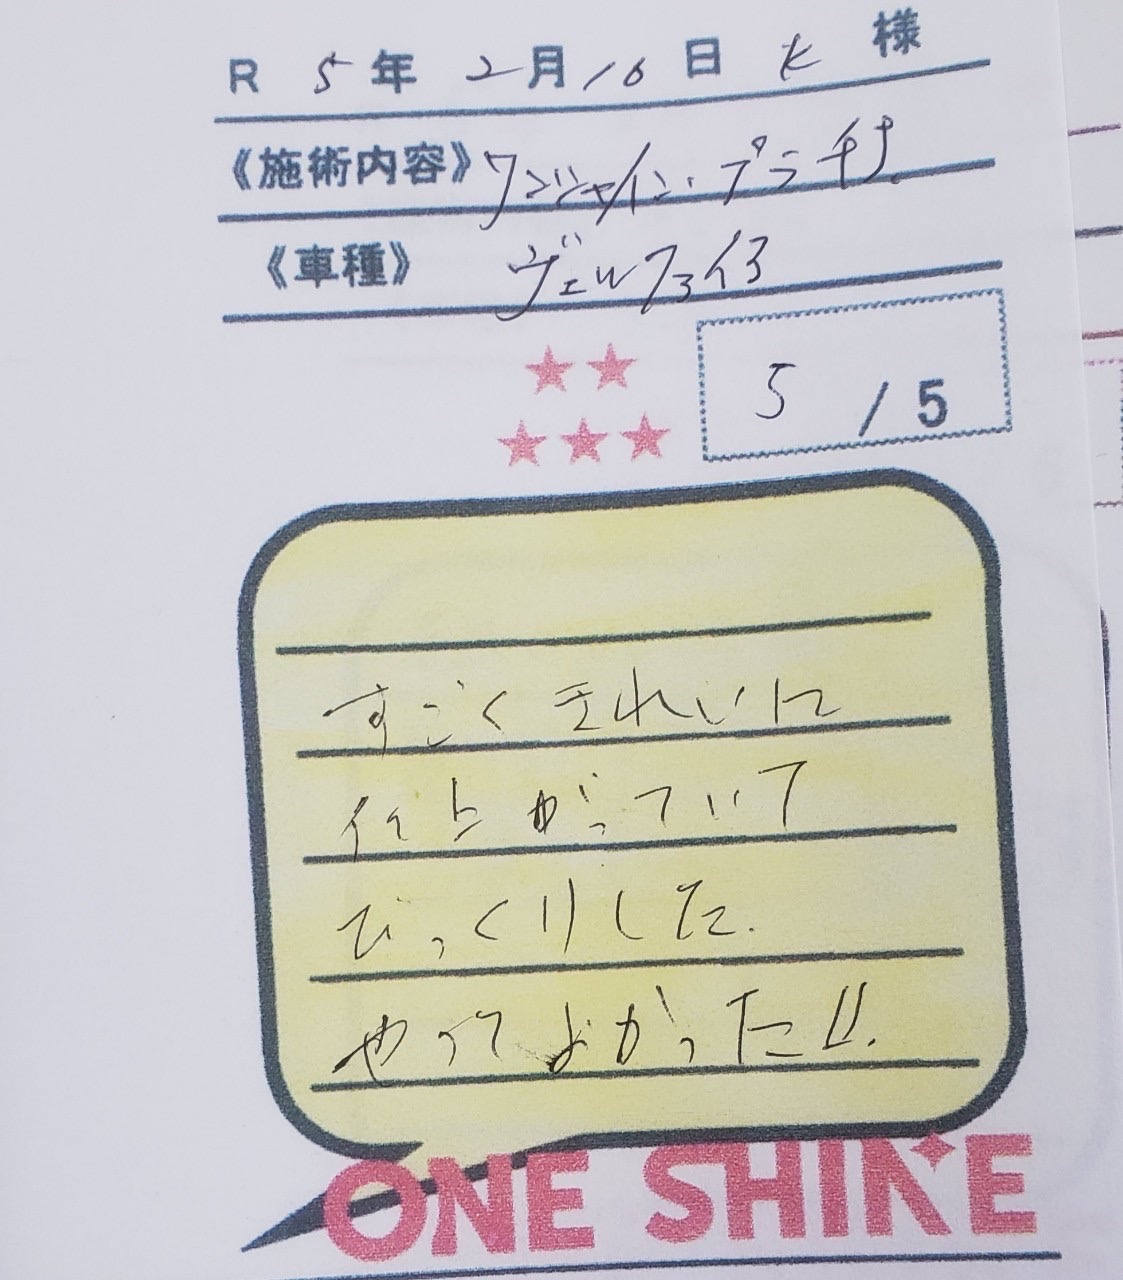 R 5年 2月16日 K 様
《施術内容》ワンシャイン・プラチナ
《車種》 ヴェルファイア
★★
★★★
5 / 5
すごくきれいに
仕上がっていて
びっくりした.
やってよかった!!.
ONE SHINE